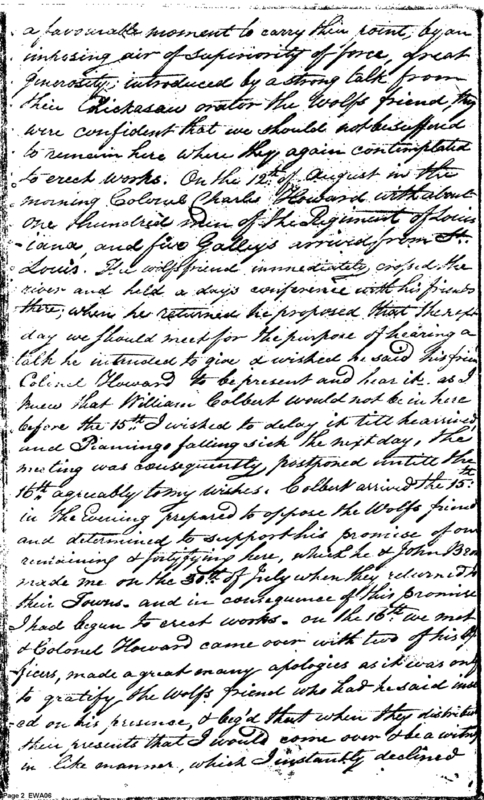 a favourable moment to carry their point, by an
imposing air of superiority of force, great
generosity, introduced by a strong talk from
their Chickasaw orator the Wolfs friend, they
were confident that we should not be suffered
to remain here where they again contemplated
to erect works. On the 12th of August in the
morning Colonel Charles Howard with about
one Hundred men of the Regiment of Louis
iana, and five Galleys arrived from St.
Louis. The wolfs friend immediately crossed the
river and held a days conference with his friends
there; when he returned he proposed that the next
day we should meet for the purpose of hearing a
talk he intended to give & wished he said his frien
Colonel Howard to be present and hear it. as I
knew that William Colbert would not be in here
before the 15th I wished to delay it till he arrived
and Piamingo falling sick the next day, the
meeting was consequently postponed untill the
16th agreably to my wishes. Colbert arrived the 15th
in the Evening prepared to oppose the Wolfs friend
and determined to support his promise of our
remaining & fortyfying here, which he & John Bro
made me on the 30th of July when they returned to
their Towns. and in consequence of this promise
I had begun to erect works. on the 16th we met
& Colonel Howard came over with two of his Of
ficers, made a great many apologies as it was only
to gratify the Wolfs friend who had he said insis
ed on his presence, & beg'd that when they distribu
their presents that I would come over & be a witn
in like manner, which I instantly declined
Page 2 EWA06